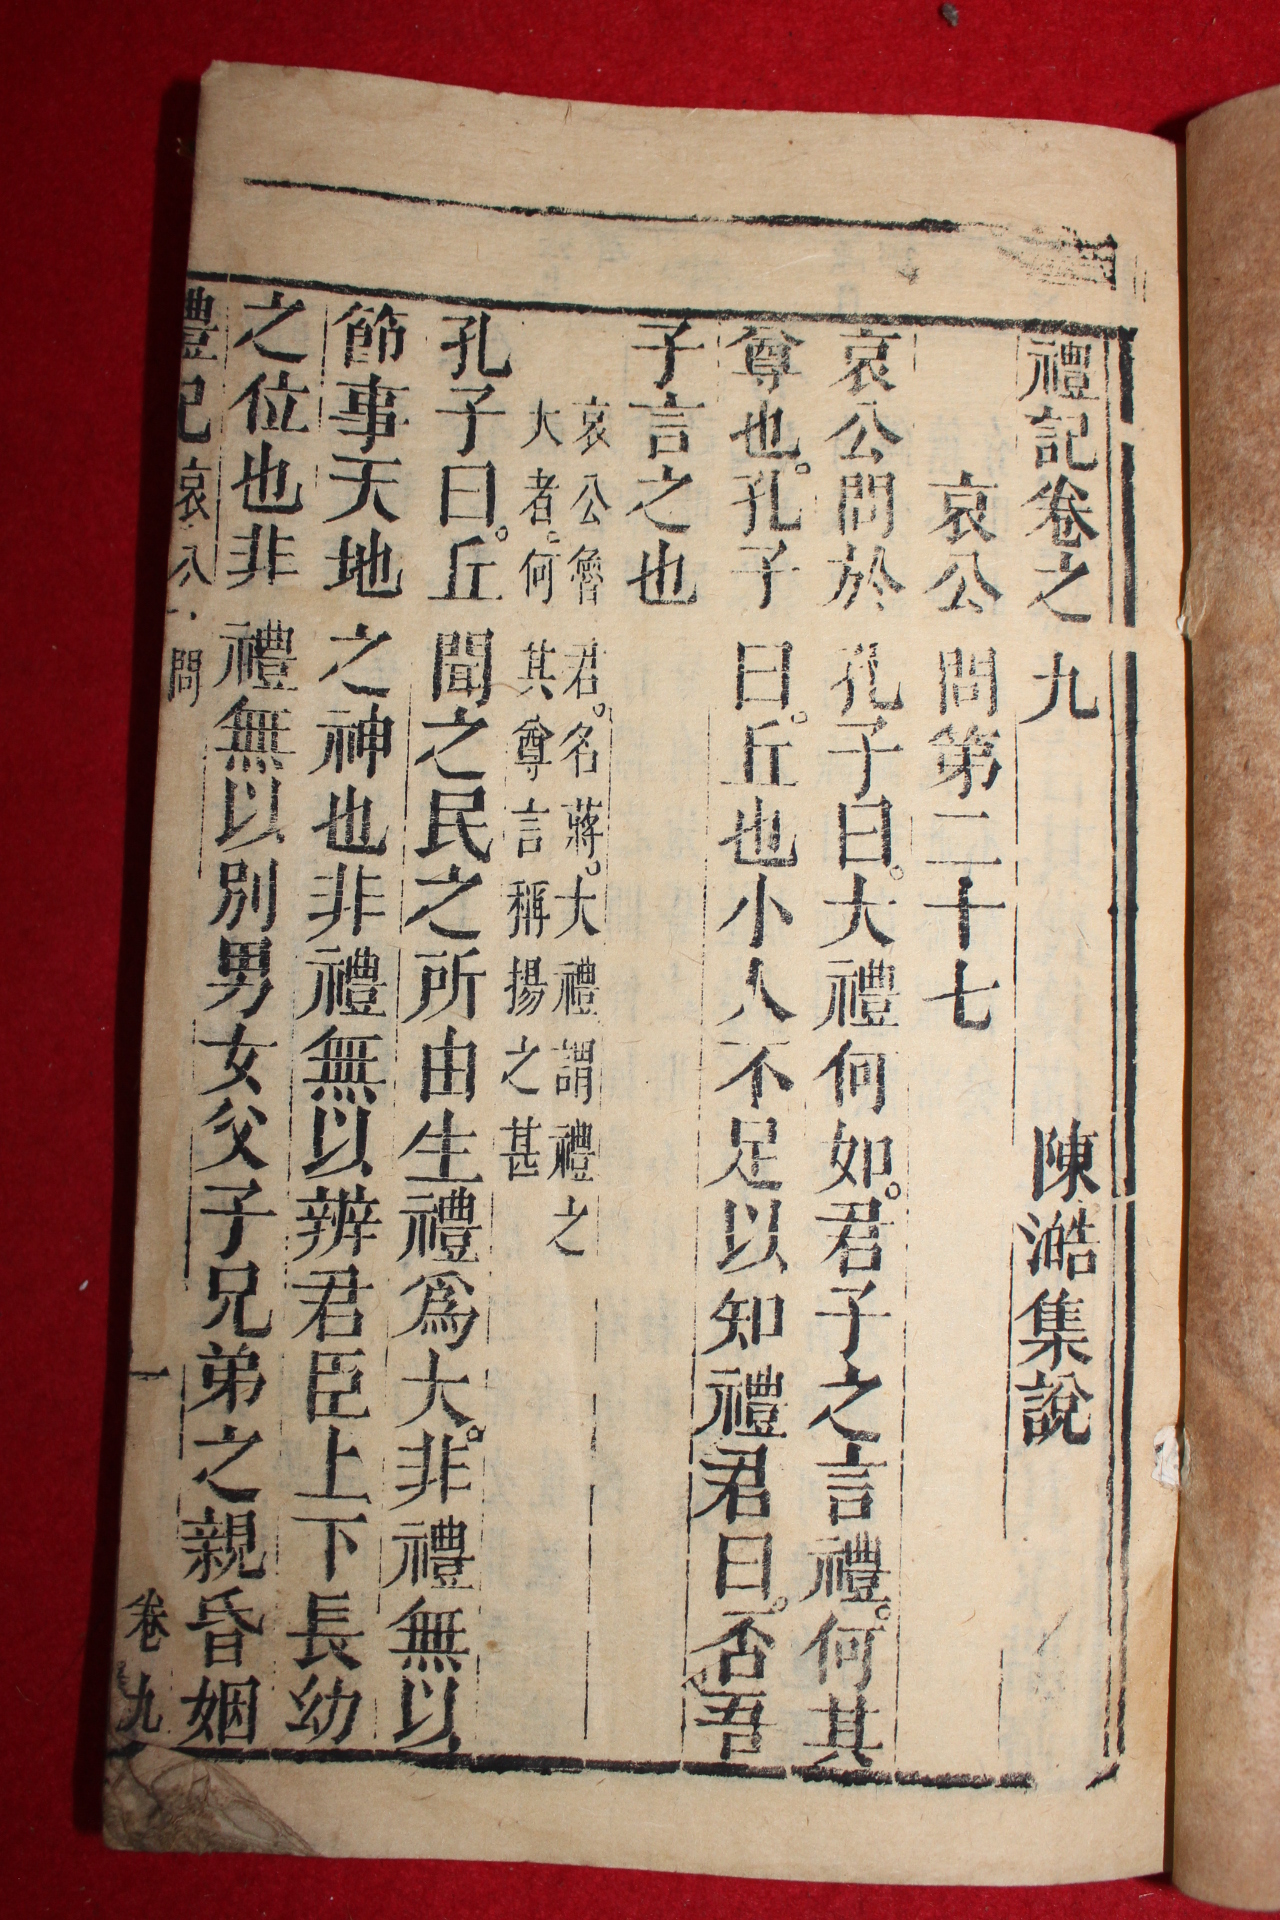 禮記卷之九 陳澔集說
哀公問第二十七
哀公問於孔子曰。大禮何如。君子之言禮。何其
尊也。孔子曰。丘也小人不足以知禮君曰。否吾
子言之也
哀公魯君。名蔣。大禮謂禮之
大者。何其尊言稱揚之甚
孔子曰。丘聞之民之所由生禮爲大。非禮無以
節事天地之神也非禮無以辨君臣上下長幼
之位也非禮無以別男女父子兄弟之親昏姻
禮記哀公問 一 卷九